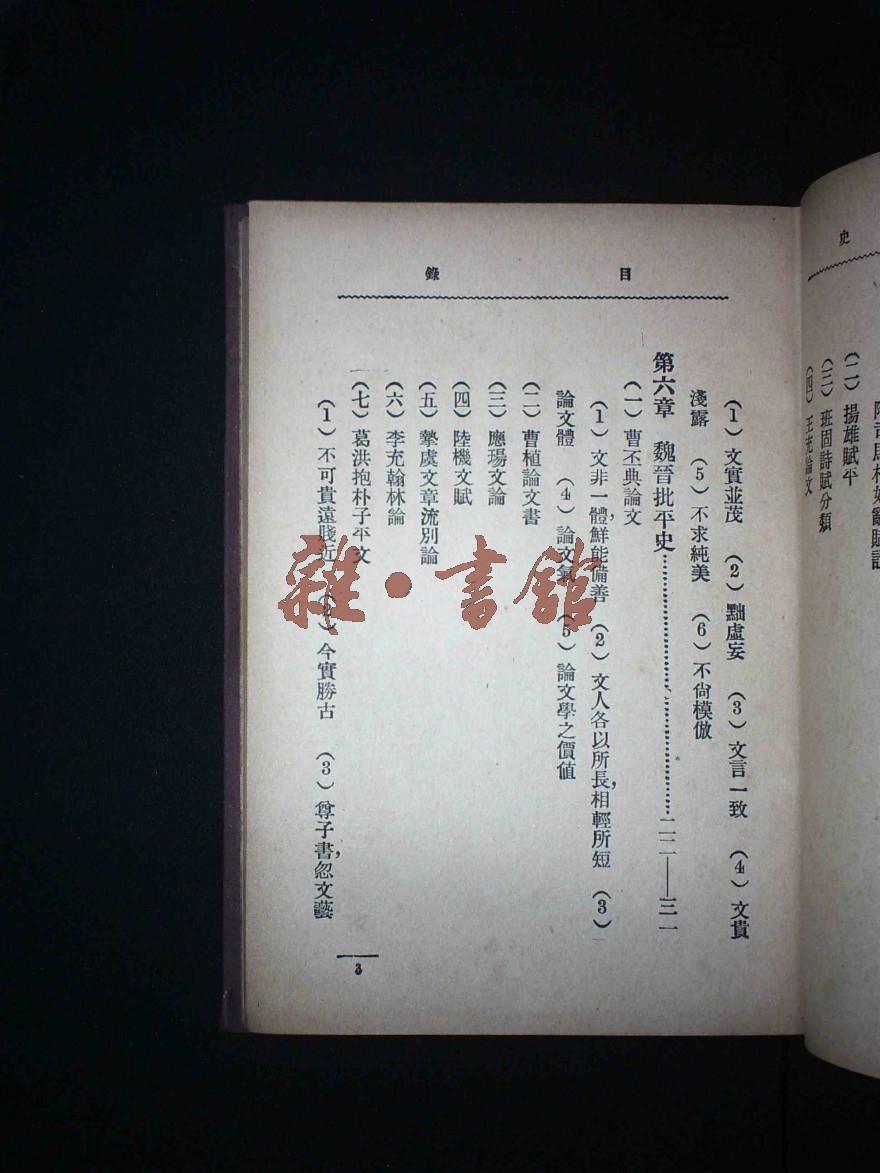 史
（二）揚雄賦平
（三）班固詩賦分類
（四）王充論文
目錄
（1）文實並茂　（2）黜虛妄　（3）文言一致　（4）文貴
淺露　（5）不求純美　（6）不尙模倣
第六章　魏晉批平史……………………二二——三一
（一）曹丕典論文
（1）文非一體,鮮能備善　（2）文人各以所長,相輕所短　（3）
論文體　（4）論文氣　（5）論文學之價値
（二）曹植論文書
（三）應瑒文論
（四）陸機文賦
（五）摯虞文章流別論
（六）李充翰林論
（七）葛洪抱朴子平文
（1）不可貴遠賤近　（2）今實勝古　（3）尊子書,忽文藝
3
雜·書館